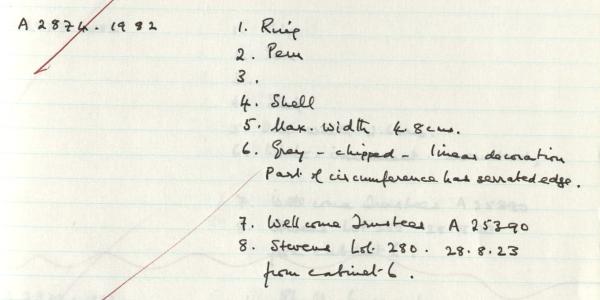 A 2874.1982
1. Ring
2. Peru
3.
4. Shell
5. Max. width 4.8cms.
6. Grey - chipped - linear decoration
Part of circumference has serrated edge.
7. Wellcome Trustees A 25390
8. Stevens Lot. 280. 28.8.23
from cabinet 6.